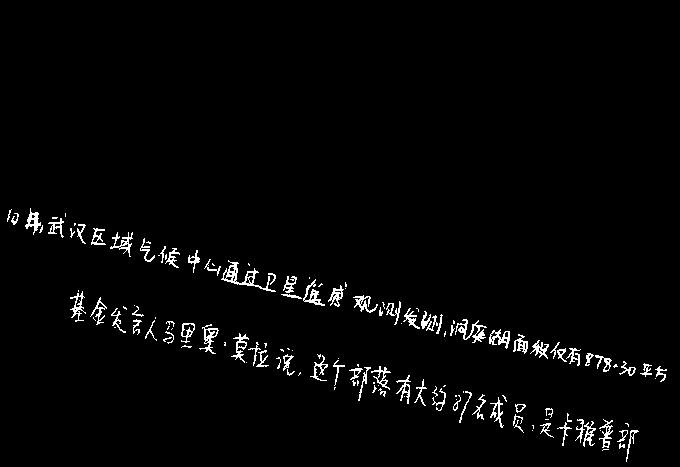 日,武汉区域气候中心通过卫星遥感观测发现,洞庭湖面积仅有878.30平方
基金发言人马里奥·莫拉说,这个部落有大约87名成员,是卡雅普部